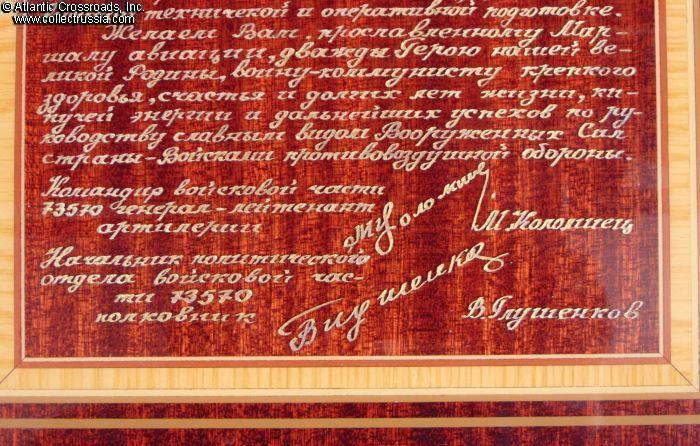 © Atlantic Crossroads, Inc.
www.collectrussia.com
технической и оперативной подготовке.
Желаем Вам, прославленному Мар-
шалу авиации, дважды Герою нашей Ве-
ликой Родины, воину-коммунисту крепкого
здоровья, счастья и долгих лет жизни, ки-
пучей энергии и дальнейших успехов по ру-
ководству славным видом Вооруженных Сил
страны-Войсками противовоздушной обороны.
Командир войсковой части
73570 генерал-лейтенант
артилерии
М. Коломиец
Начальник политического
отдела войсковой час-
ти 73570
полковник
В. Глушенков